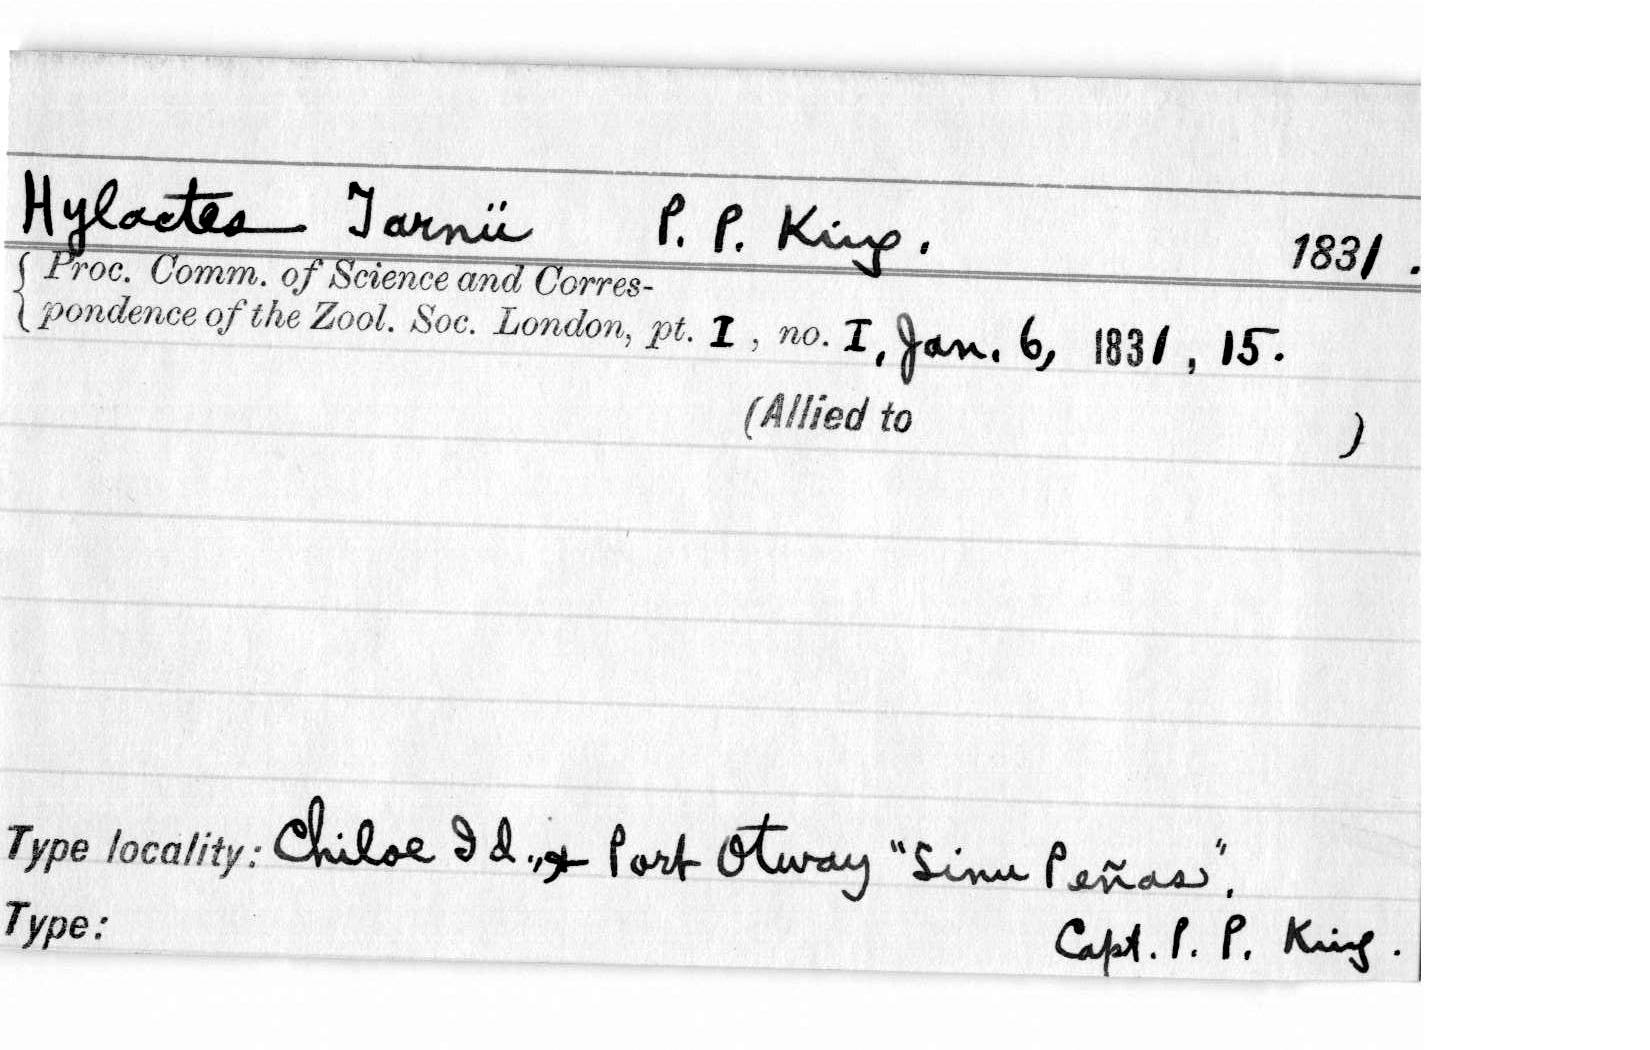 Hylactes Tarnii P. P. King. 1831.
Proc. Comm. of Science and Corres-
pondence of the Zool. Soc. London, pt. I, no. I, Jan. 6, 1831, 15.
(Allied to )
Type locality: Chiloe Id., & Port Otway "Sinu Peñas".
Type: Capt. P. P. King.